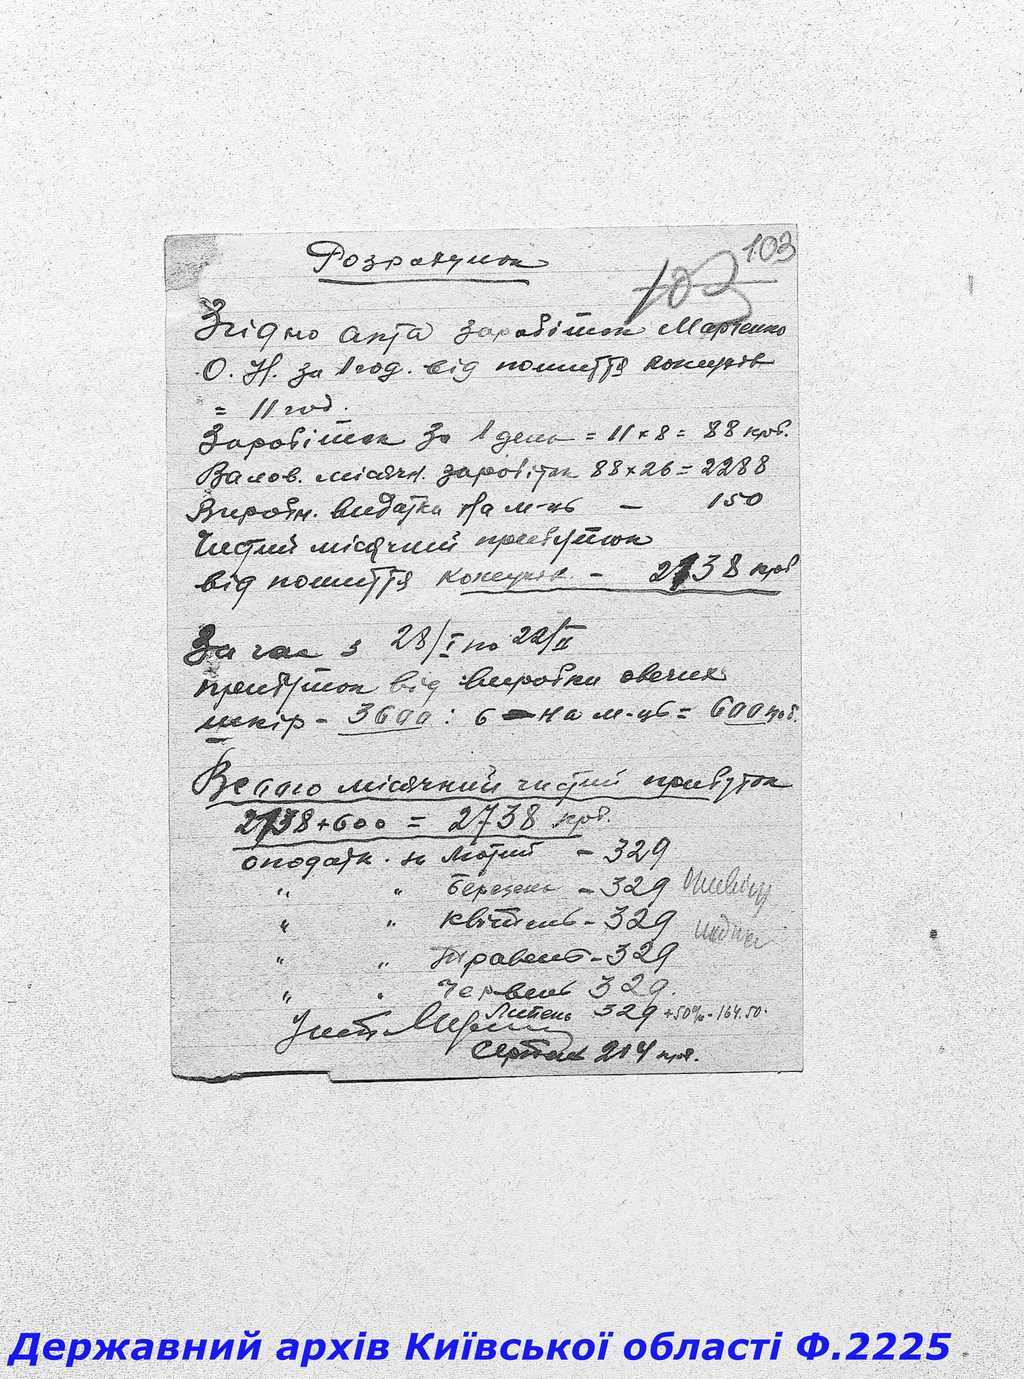 103
Розрахунок
103
Згідно акта заробіток Марченко
О. Н. за 1 год. від пошиття кожухів
= 11 год.
Заробіток за 1 день = 11 x 8 = 88 крб.
Валов. місячн. заробіток 88 x 26 = 2288
Виробн. видатки на м-ць — 150
Чистий місячний прибуток
від пошиття кожухів – 2138 крб
За час з 28/I по 22/II
прибуток від виробки овечих
шкір – 3600 : 6 на м-ць = 600 крб.
Всього місячний чистий прибуток
2138 + 600 = 2738 крб.
оподатк. за лютий – 329
" " березень – 329
" " квітень – 329
" " травень – 329
" " червень 329.
Липень 329 + 50% - 164.50.
Серпень 214 крб.
Державний архів Київської області Ф.2225